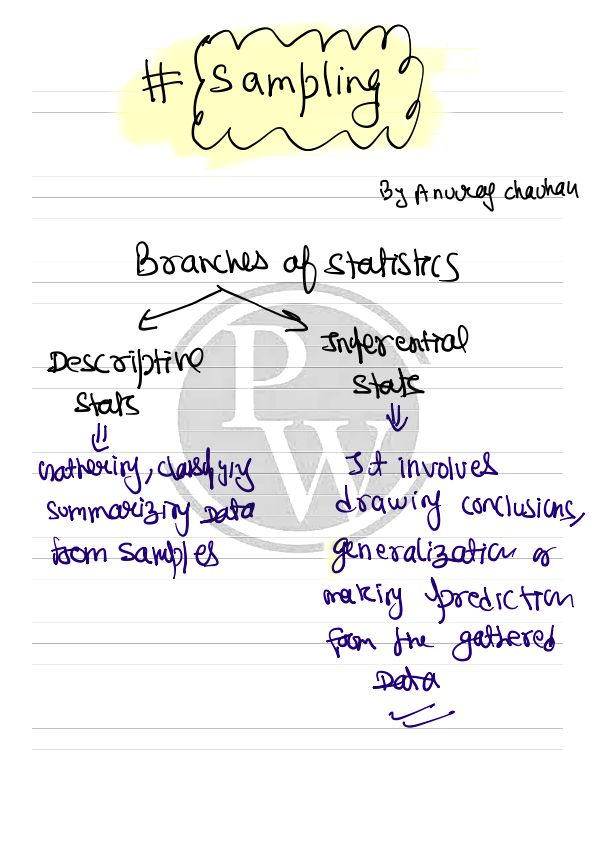 # Sampling
By Anurag Chauhan
Branches of Statistics
Descriptive
Stats
Inferential
Stats
Gathering, classifying
summarizing Data
from samples
It involves
drawing conclusions,
generalization or
making prediction
from the gathered
Data
PW